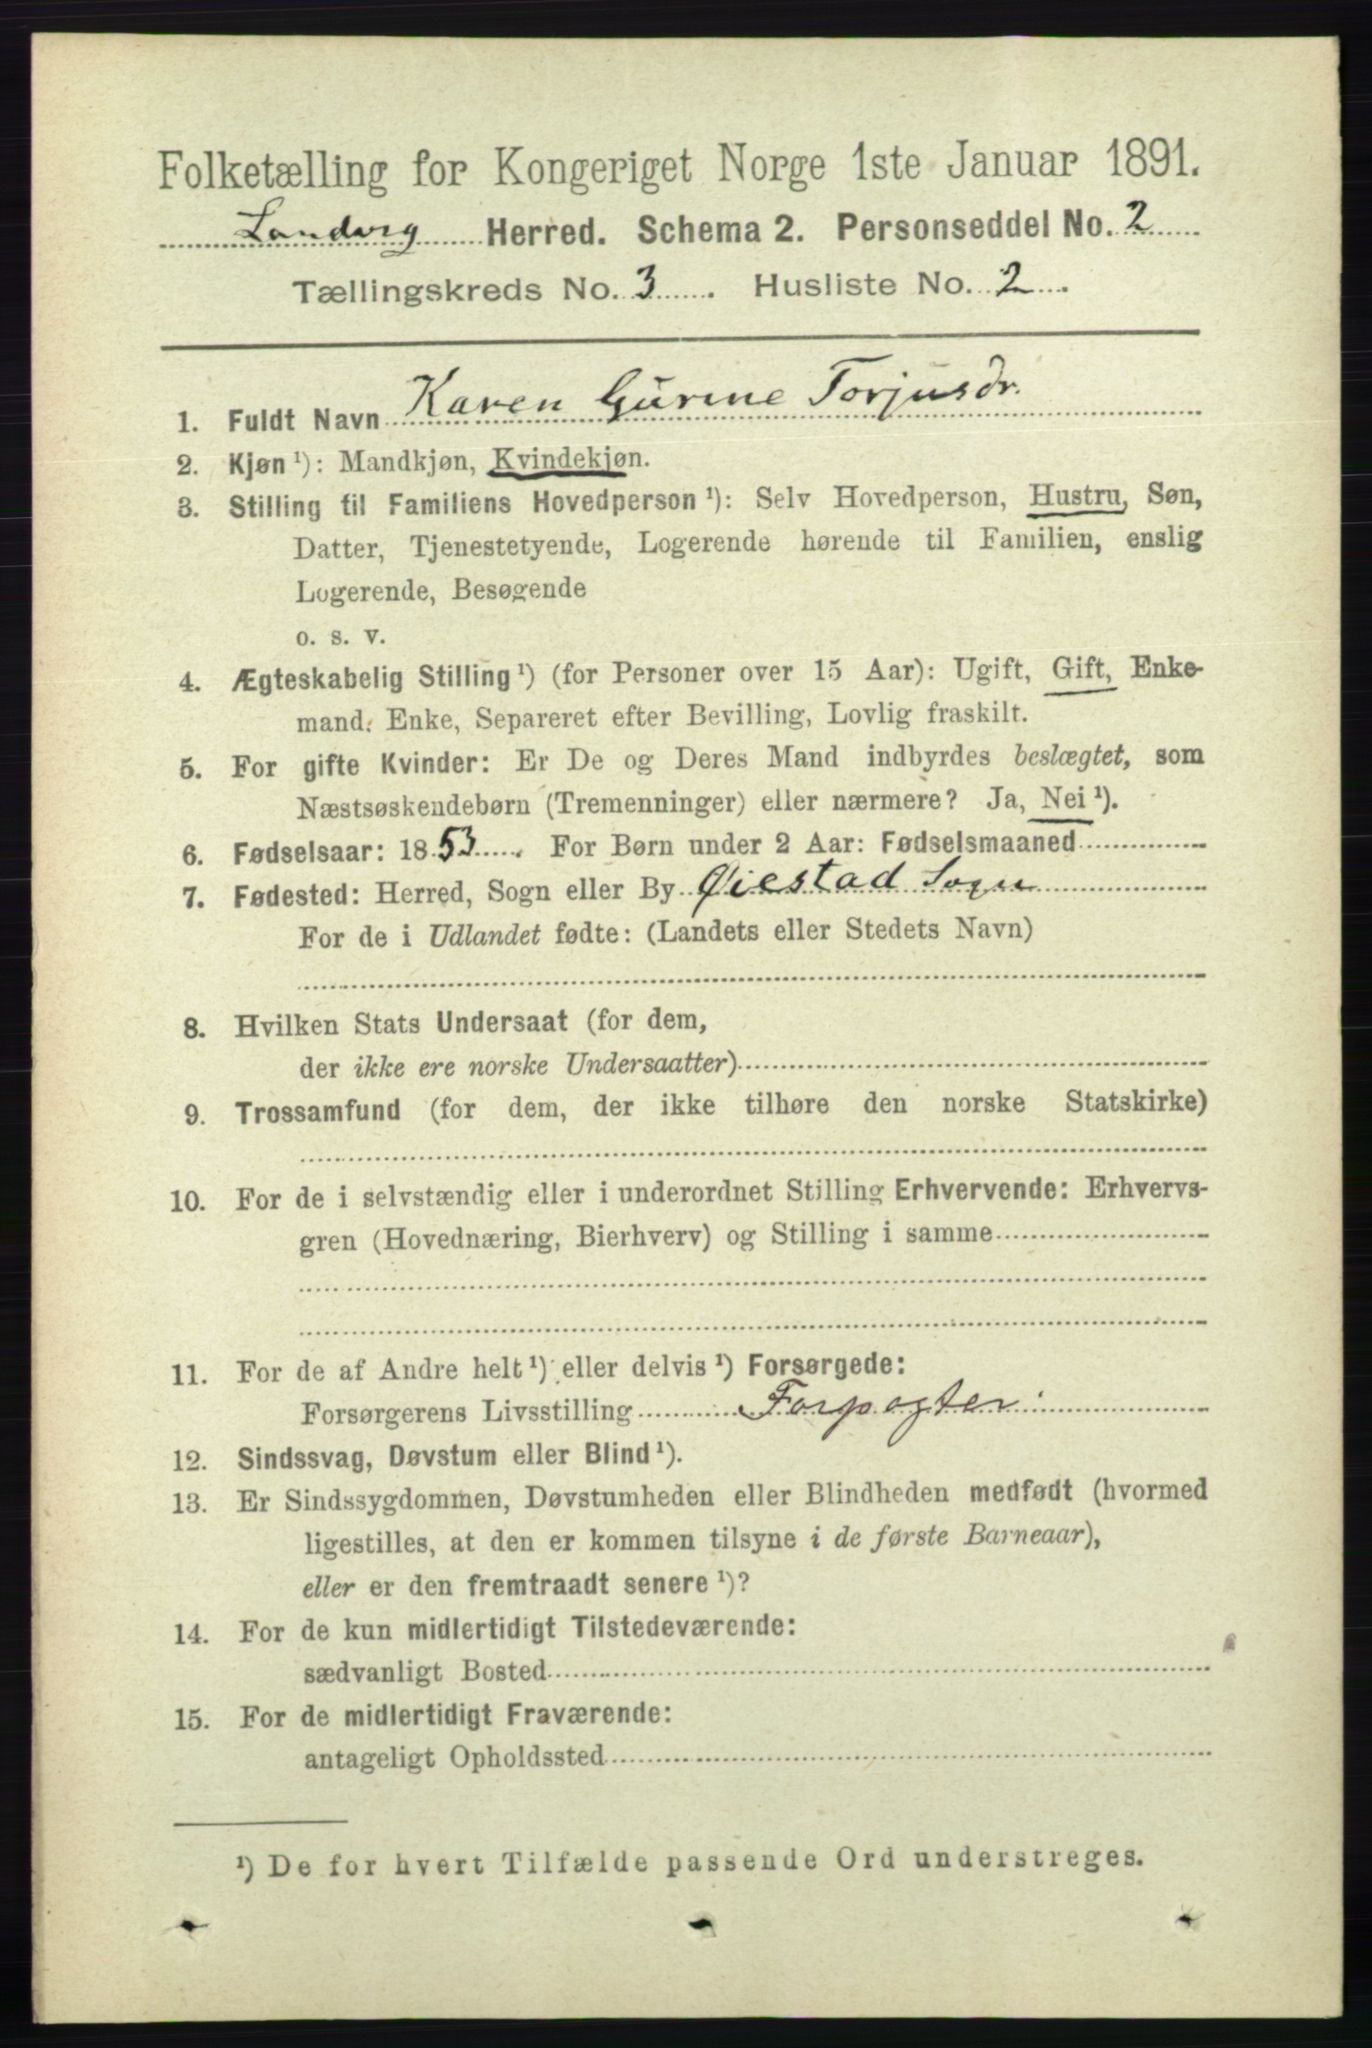 Folketælling for Kongeriget Norge 1ste Januar 1891.
Landvig Herred. Schema 2. Personseddel No. 2
Tællingskreds No. 3. Husliste No. 2.
1. Fuldt Navn Karen Gurine Torjusdr.
2. Kjøn ¹): Mandkjøn, Kvindekjøn.
3. Stilling til Familiens Hovedperson ¹): Selv Hovedperson, Hustru, Søn,
Datter, Tjenestetyende, Logerende hørende til Familien, enslig
Logerende, Besøgende
o. s. v.
4. Ægteskabelig Stilling ¹) (for Personer over 15 Aar): Ugift, Gift, Enke-
mand, Enke, Separeret efter Bevilling, Lovlig fraskilt.
5. For gifte Kvinder: Er De og Deres Mand indbyrdes beslægtet, som
Næstsøskendebørn (Tremenninger) eller nærmere? Ja, Nei ¹).
6. Fødselsaar: 1853. For Børn under 2 Aar: Fødselsmaaned
7. Fødested: Herred, Sogn eller By Øiestad Sogn
For de i Udlandet fødte: (Landets eller Stedets Navn)
8. Hvilken Stats Undersaat (for dem,
der ikke ere norske Undersaatter)
9. Trossamfund (for dem, der ikke tilhøre den norske Statskirke)
10. For de i selvstændig eller i underordnet Stilling Erhvervende: Erhvervs-
gren (Hovednæring, Bierhverv) og Stilling i samme
11. For de af Andre helt ¹) eller delvis ¹) Forsørgede:
Forsørgerens Livsstilling Forpagter
12. Sindssvag, Døvstum eller Blind ¹).
13. Er Sindssygdommen, Døvstumheden eller Blindheden medfødt (hvormed
ligestilles, at den er kommen tilsyne i de første Barneaar),
eller er den fremtraadt senere ¹)?
14. For de kun midlertidigt Tilstedeværende:
sædvanligt Bosted
15. For de midlertidigt Fraværende:
antageligt Opholdssted
¹) De for hvert Tilfælde passende Ord understreges.